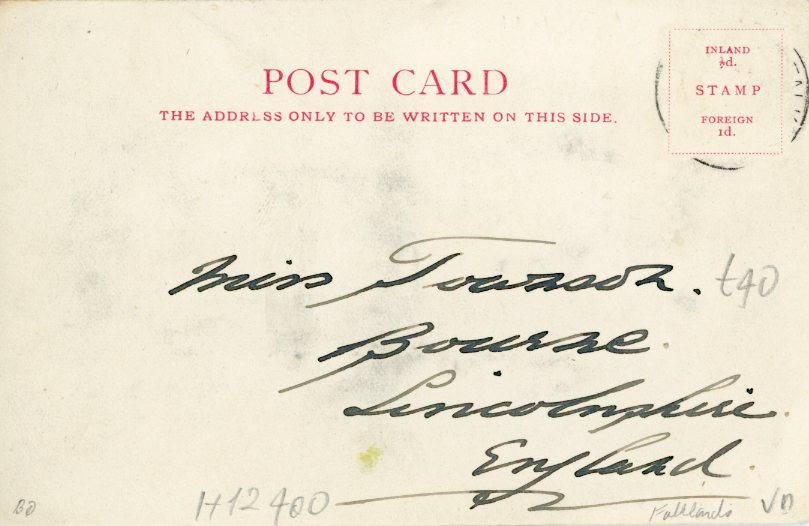 POST CARD
THE ADDRESS ONLY TO BE WRITTEN ON THIS SIDE.
INLAND
½d.
STAMP
FOREIGN
1d.
Miss Townson. £40
Bourne.
Lincolnshire.
England.
BD
H12400
Falklands
VD